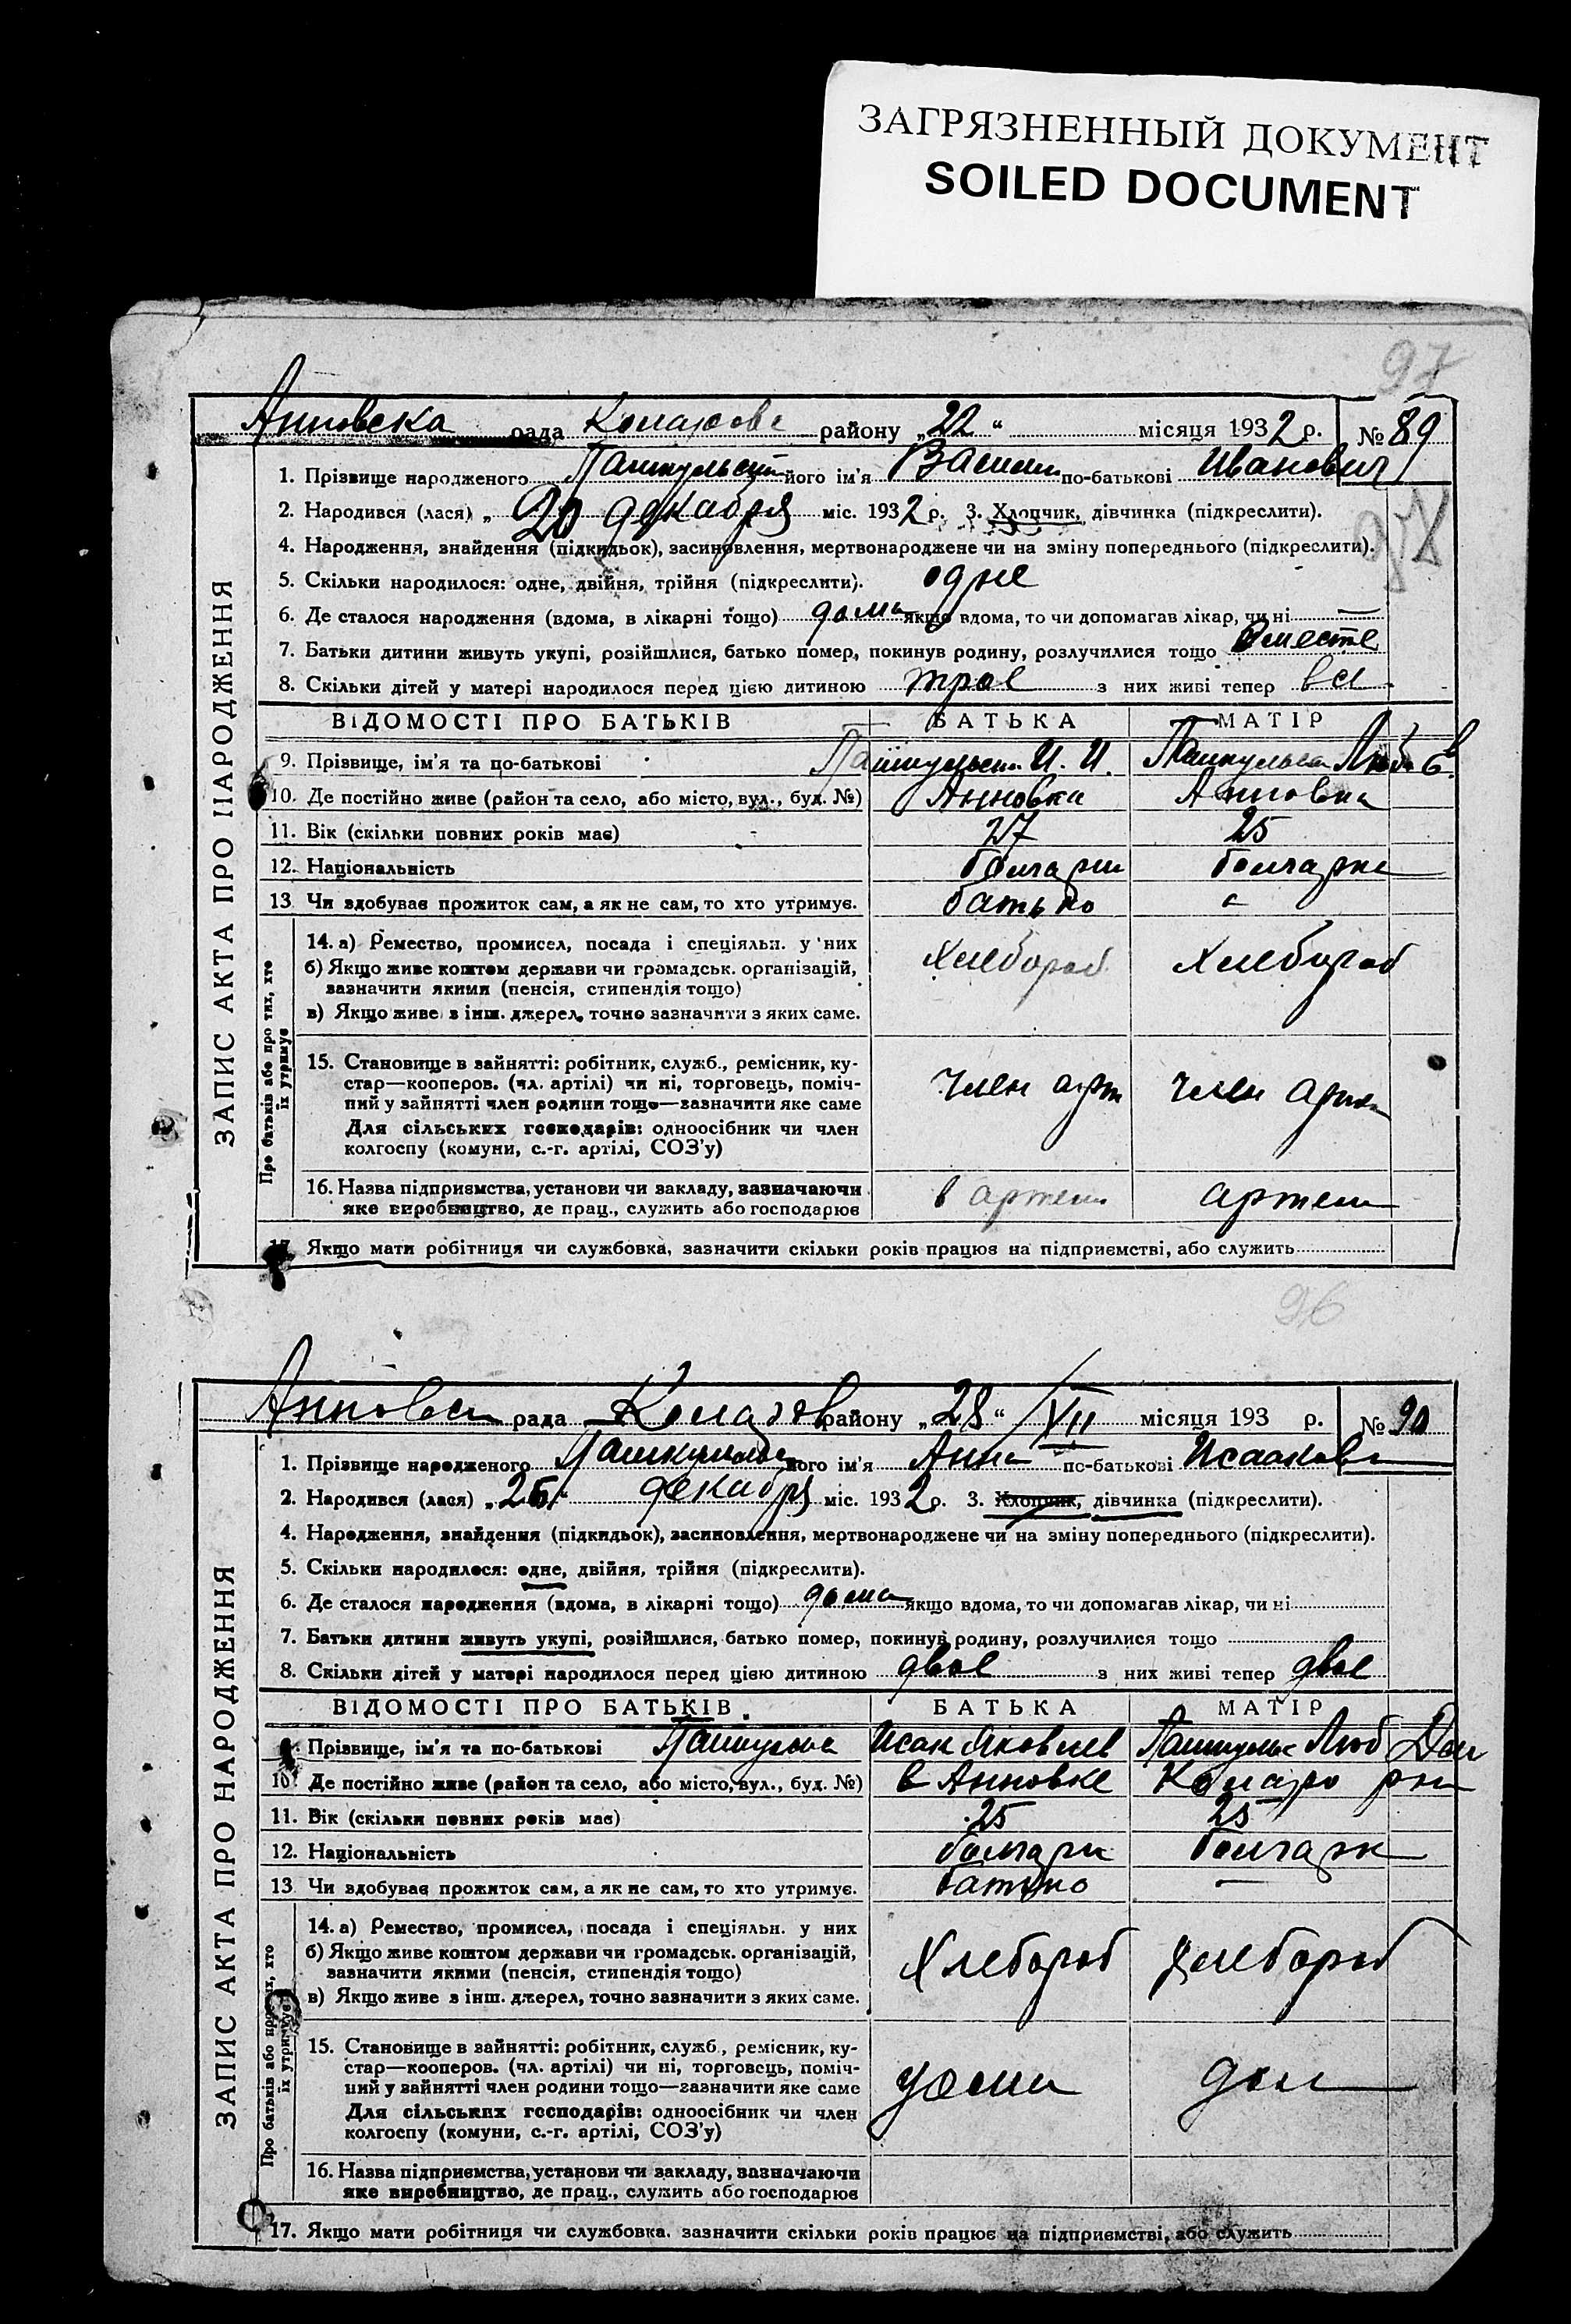 ЗАГРЯЗНЕННЫЙ ДОКУМЕНТ
SOILED DOCUMENT
97
Анновска рада района району „22“ місяця 1932 р. № 89
1. Прізвище народженого його ім'я Васили по-батькові Иванович
2. Народився (лася) „20 декабря міс. 1932 р. 3. Хлопчик, дівчинка (підкреслити).
97
4. Народження, знайдення (підкидьок), засиновлення, мертвонароджене чи на зміну попереднього (підкреслити).
5. Скільки народилося: одне, двійня, трійня (підкреслити). одне
6. Де сталося народження (вдома, в лікарні тощо) дома якщо вдома, то чи допомагав лікар, чи ні —
7. Батьки дитини живуть укупі, розійшлися, батько помер, покинув родину, розлучилися тощо вместе
8. Скільки дітей у матері народилося перед цією дитиною трое з них живі тепер все
ЗАПИС АКТА ПРО НАРОДЖЕННЯ
ВІДОМОСТІ ПРО БАТЬКІВ БАТЬКА МАТІР
9. Прізвище, ім'я та по-батькові И. И.
10. Де постійно живе (район та село, або місто, вул., буд. №) Анновка Анновка
11. Вік (скільки повних років має) 27 25
12. Національність болгарин болгарка
13. Чи здобуває прожиток сам, а як не сам, то хто утримує. батько
Про батьків або про тих, хто їх утримує
14. а) Ремество, промисел, посада і спеціяльн. у них Хлебороб Хлебороб
б) Якщо живе коштом держави чи громадськ. організацій,
зазначити якими (пенсія, стипендія тощо)
в) Якщо живе з інш. джерел, точно зазначити з яких саме.
15. Становище в зайнятті: робітник, служб., ремісник, ку-
стар—кооперов. (чл. артілі) чи ні, торговець, поміч- член арт член артел
ний у зайнятті член родини тощо—зазначити яке саме
Для сільських господарів: одноосібник чи член
колгоспу (комуни, с.-г. артілі, СОЗ'у)
16. Назва підприємства, установи чи закладу, зазначаючи в артели артели
яке виробництво, де прац., служить або господарює
17. Якщо мати робітниця чи службовка, зазначити скільки років працює на підприємстві, або служить
96
Анновск рада району „28“ / XII місяця 193 р. № 90
1. Прізвище народженого його ім'я Анна по-батькові Исааковн
2. Народився (лася) „26“ декабря міс. 1932 р. 3. Хлопчик, дівчинка (підкреслити).
4. Народження, знайдення (підкидьок), засиновлення, мертвонароджене чи на зміну попереднього (підкреслити).
5. Скільки народилося: одне, двійня, трійня (підкреслити).
6. Де сталося народження (вдома, в лікарні тощо) дома якщо вдома, то чи допомагав лікар, чи ні
7. Батьки дитини живуть укупі, розійшлися, батько помер, покинув родину, розлучилися тощо
8. Скільки дітей у матері народилося перед цією дитиною двое з них живі тепер двое
ЗАПИС АКТА ПРО НАРОДЖЕННЯ
ВІДОМОСТІ ПРО БАТЬКІВ БАТЬКА МАТІР
9. Прізвище, ім'я та по-батькові Исак Яковлев Люб
10. Де постійно живе (район та село, або місто, вул., буд. №) в Анновке
11. Вік (скільки повних років має) 25 25
12. Національність болгарин болгарк
13. Чи здобуває прожиток сам, а як не сам, то хто утримує. батько —
Про батьків або про тих, хто їх утримує
14. а) Ремество, промисел, посада і спеціяльн. у них Хлебороб Хлебороб
б) Якщо живе коштом держави чи громадськ. організацій,
зазначити якими (пенсія, стипендія тощо)
в) Якщо живе з інш. джерел, точно зазначити з яких саме.
15. Становище в зайнятті: робітник, служб., ремісник, ку-
стар—кооперов. (чл. артілі) чи ні, торговець, поміч-
ний у зайнятті член родини тощо—зазначити яке саме
Для сільських господарів: одноосібник чи член
колгоспу (комуни, с.-г. артілі, СОЗ'у)
16. Назва підприємства, установи чи закладу, зазначаючи
яке виробництво, де прац., служить або господарює
17. Якщо мати робітниця чи службовка, зазначити скільки років працює на підприємстві, або служить